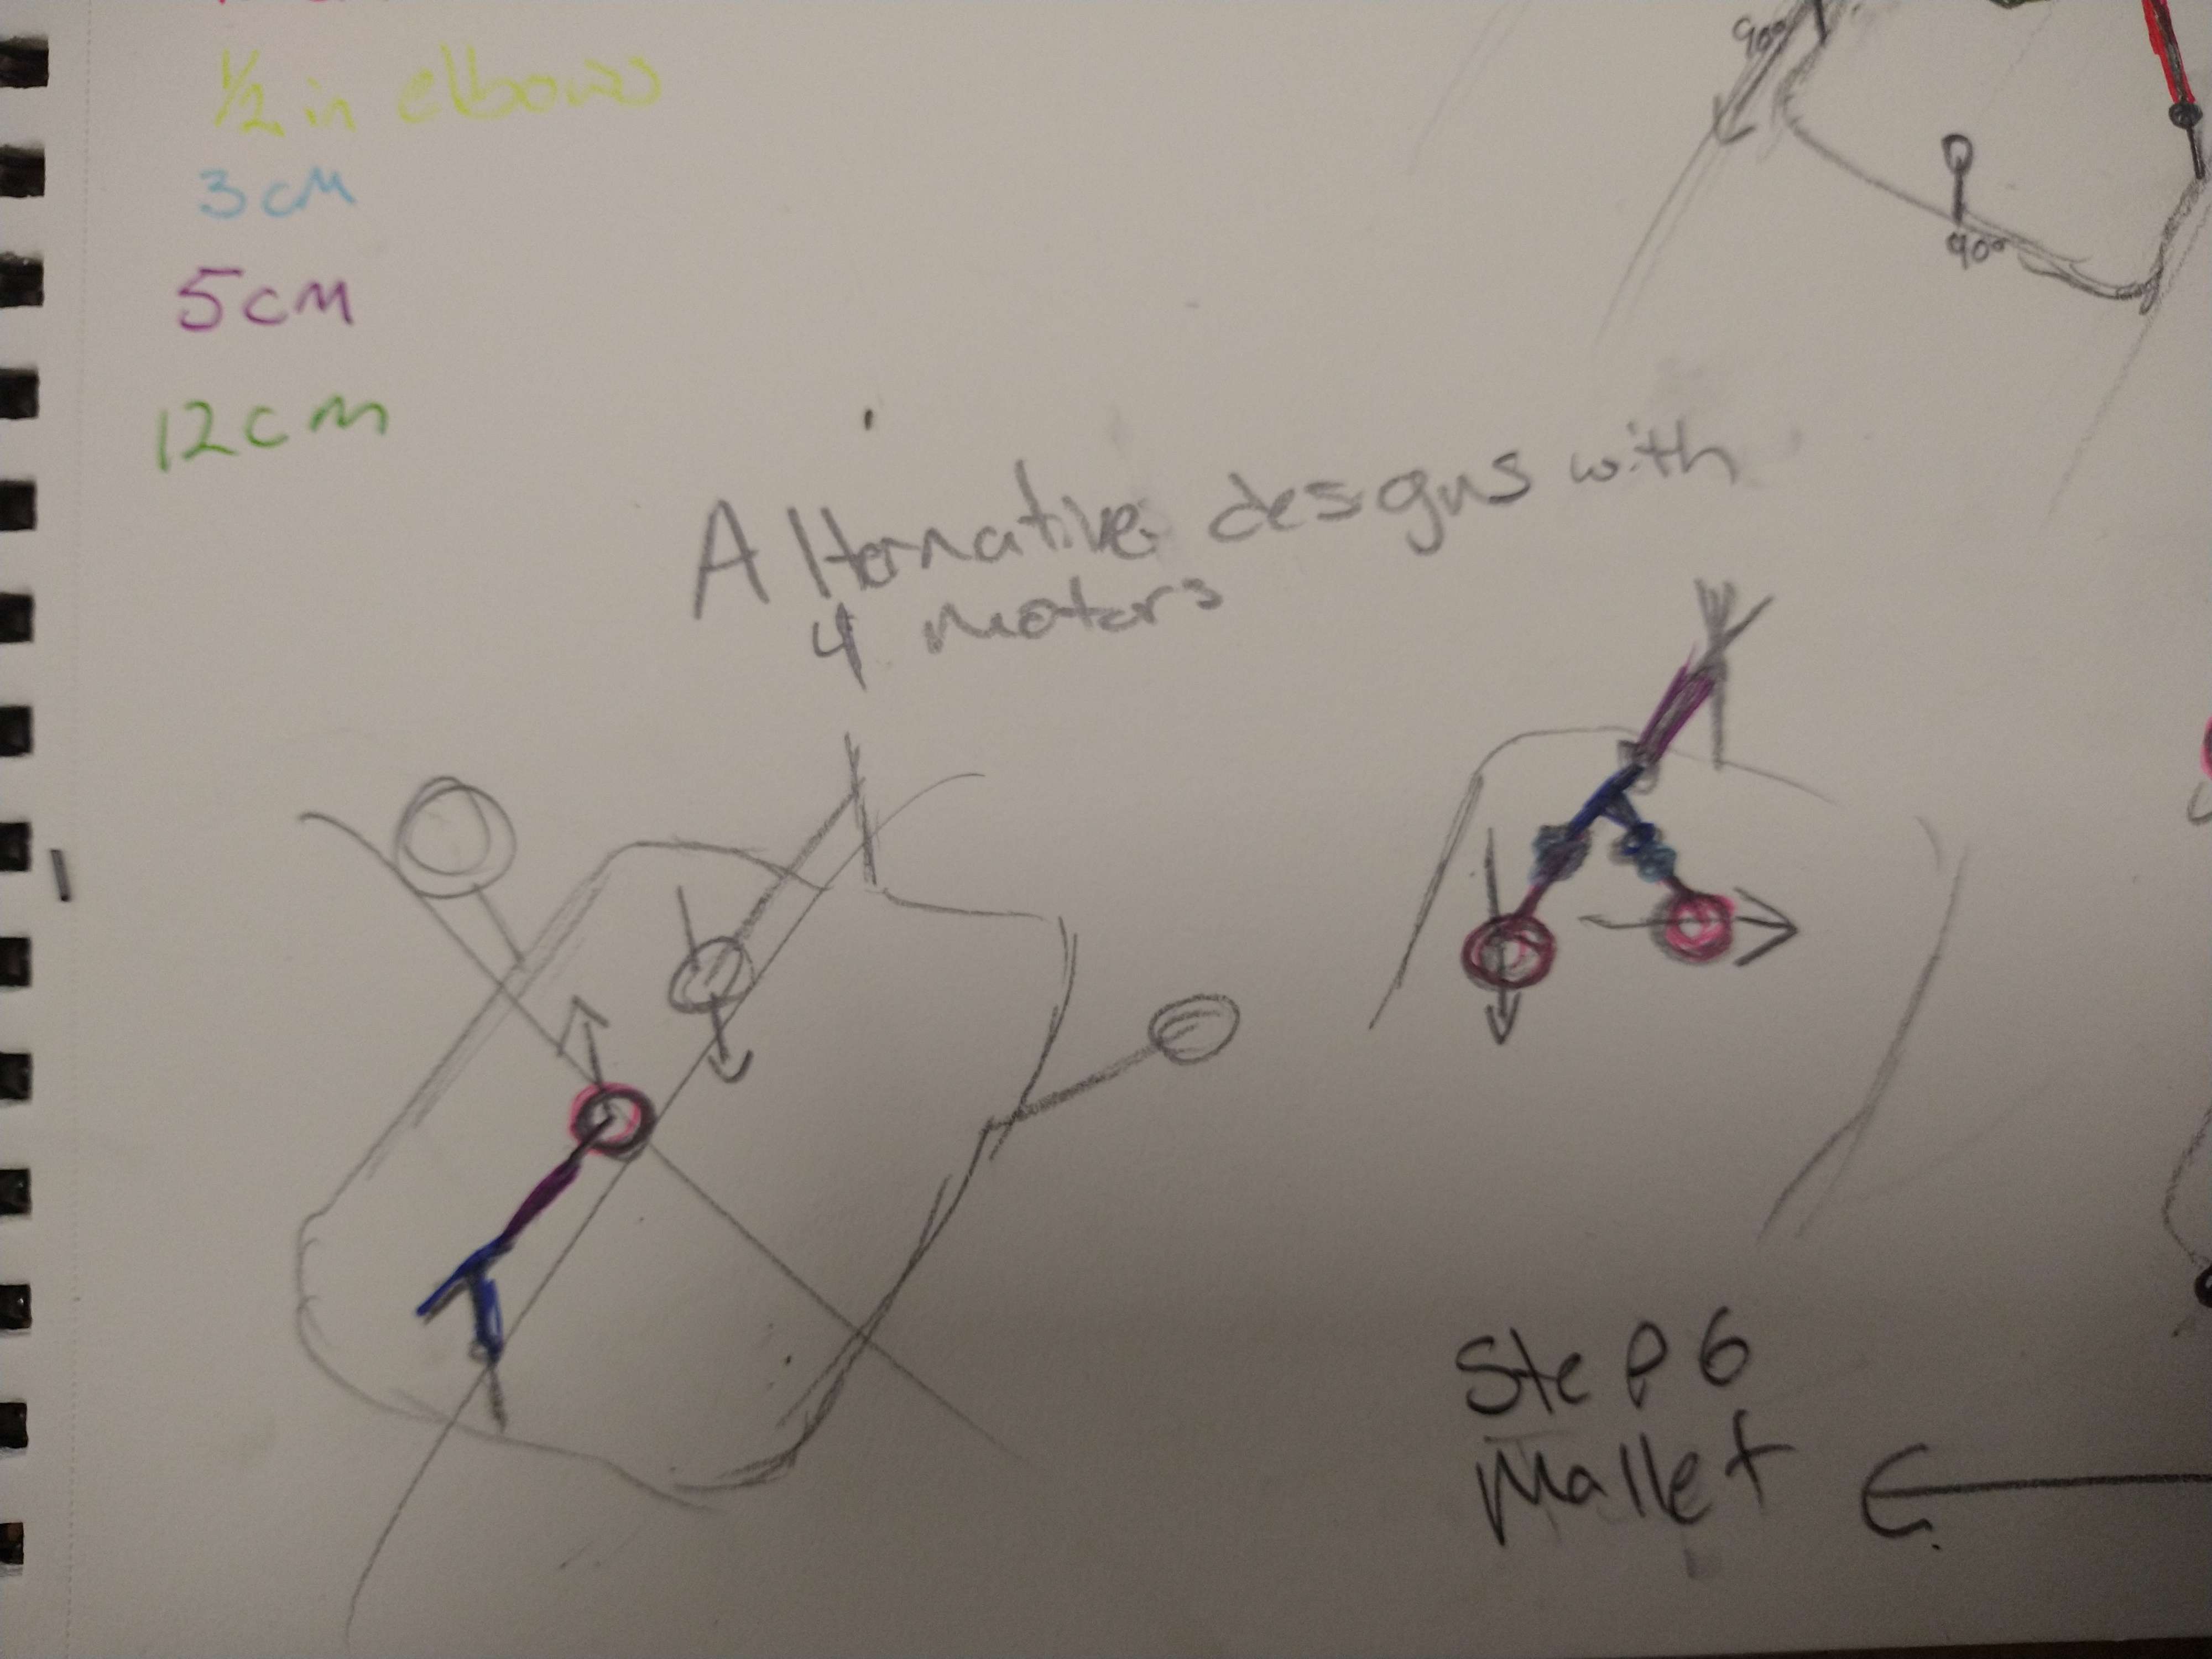 1/2 in elbows
3cm
5cm
12cm
90°
90°
Alternative designs with
4 motors
Step 6
Mallet